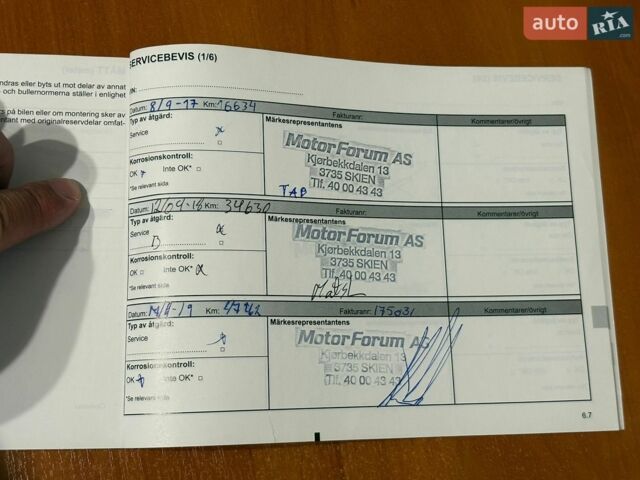 auto RIA.com
SERVICEBEVIS (1/6)
ndras eller byts ut mot delar av annat
- och bullernormerna ställer i enlighet
rs på bilen eller om montering sker av
ntant med originalreservdelar omfat-
Datum: 8/9-17 Km: 16634 Fakturanr: Kommentarer/övrigt
Typ av åtgärd:
Service
Märkesrepresentantens
MotorForum AS
Kjørbekkdalen 13
3735 SKIEN
Tlf. 40 00 43 43
Korrosionskontroll:
OK Inte OK*
*Se relevant sida
Datum: 12/09-18 Km: 34630 Fakturanr: Kommentarer/övrigt
Typ av åtgärd:
Service
Märkesrepresentantens
MotorForum AS
Kjørbekkdalen 13
3735 SKIEN
Tlf. 40 00 43 43
Korrosionskontroll:
OK Inte OK*
*Se relevant sida
Datum: Km: Fakturanr: 175031 Kommentarer/övrigt
Typ av åtgärd:
Service
Märkesrepresentantens
MotorForum AS
Kjørbekkdalen 13
3735 SKIEN
Tlf. 40 00 43 43
Korrosionskontroll:
OK Inte OK*
*Se relevant sida
6.7